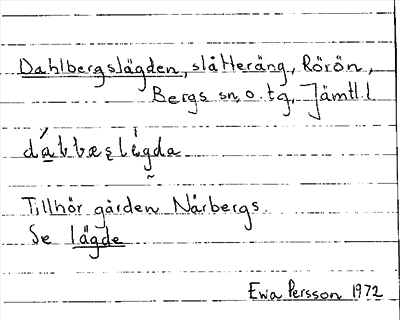 Dahlbergslägden, slåtteräng, Rörön,
Bergs sn, o. tg, Jämtl l
Tillhör gården Nårbergs.
Se lägde
Ewa Persson 1972